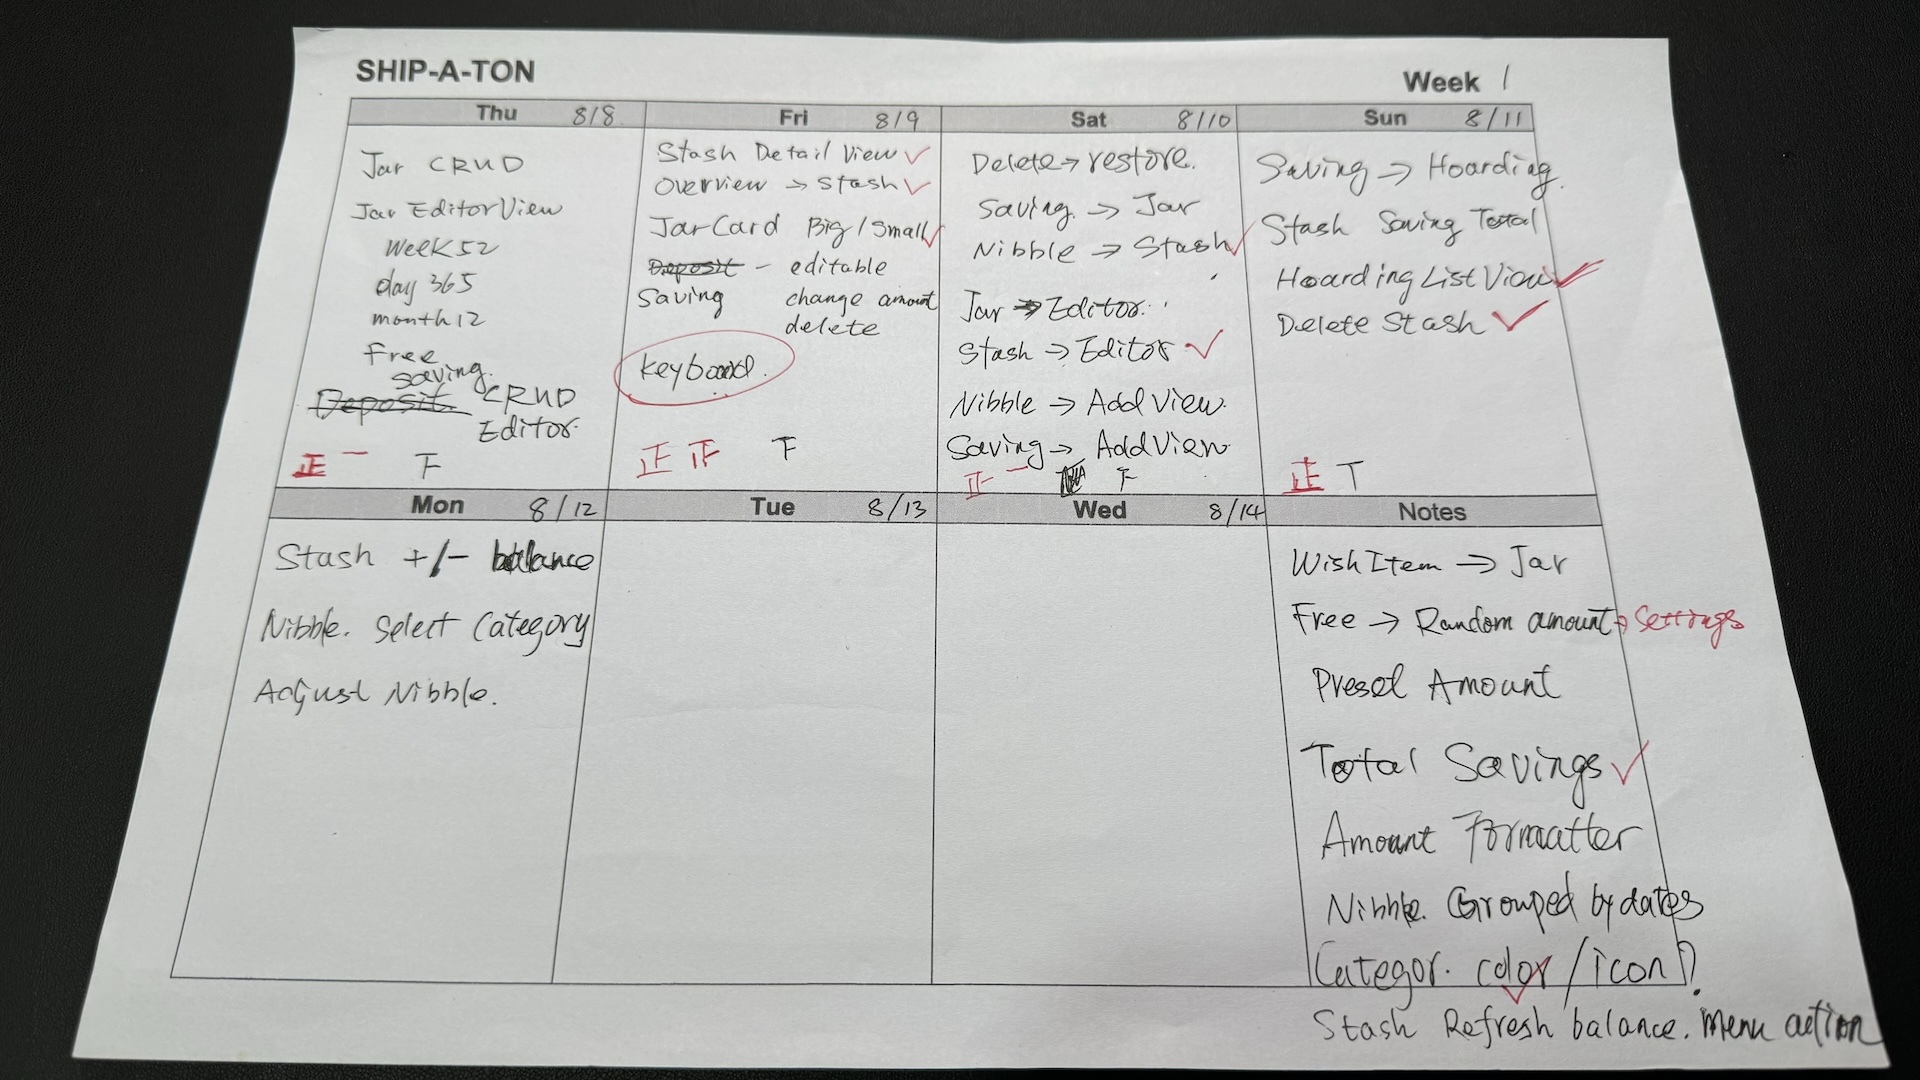 SHIP-A-TON
Week 1
Thu 8/8
Jar CRUD
Jar EditorView
Week 52
day 365
month 12
Free
saving.
Deposit. CRUD
Editor.
正 一 下
Fri 8/9
Stash Detail View ✓
Overview → Stash ✓
JarCard Big / Small ✓
Deposit - editable
Saving change amount
delete
keyboard.
正 正 下
Sat 8/10
Delete → restore.
Saving. → Jar
Nibble → Stash ✓
Jar → Editor.
Stash → Editor ✓
Nibble → Add View.
Saving → Add View
Sun 8/11
Saving → Hoarding.
Stash Saving Total
Hoarding List View ✓
Delete Stash ✓
正 T
Mon 8/12
Stash +/- balance
Nibble. Select Category
Adjust Nibble.
Tue 8/13
Wed 8/14
Notes
WishItem → Jar
Free → Random amount → Settings
Preset Amount
Total Savings ✓
Amount Formatter
Nibble. Grouped by dates
Categor. color / icon ✓
Stash Refresh balance. Menu action